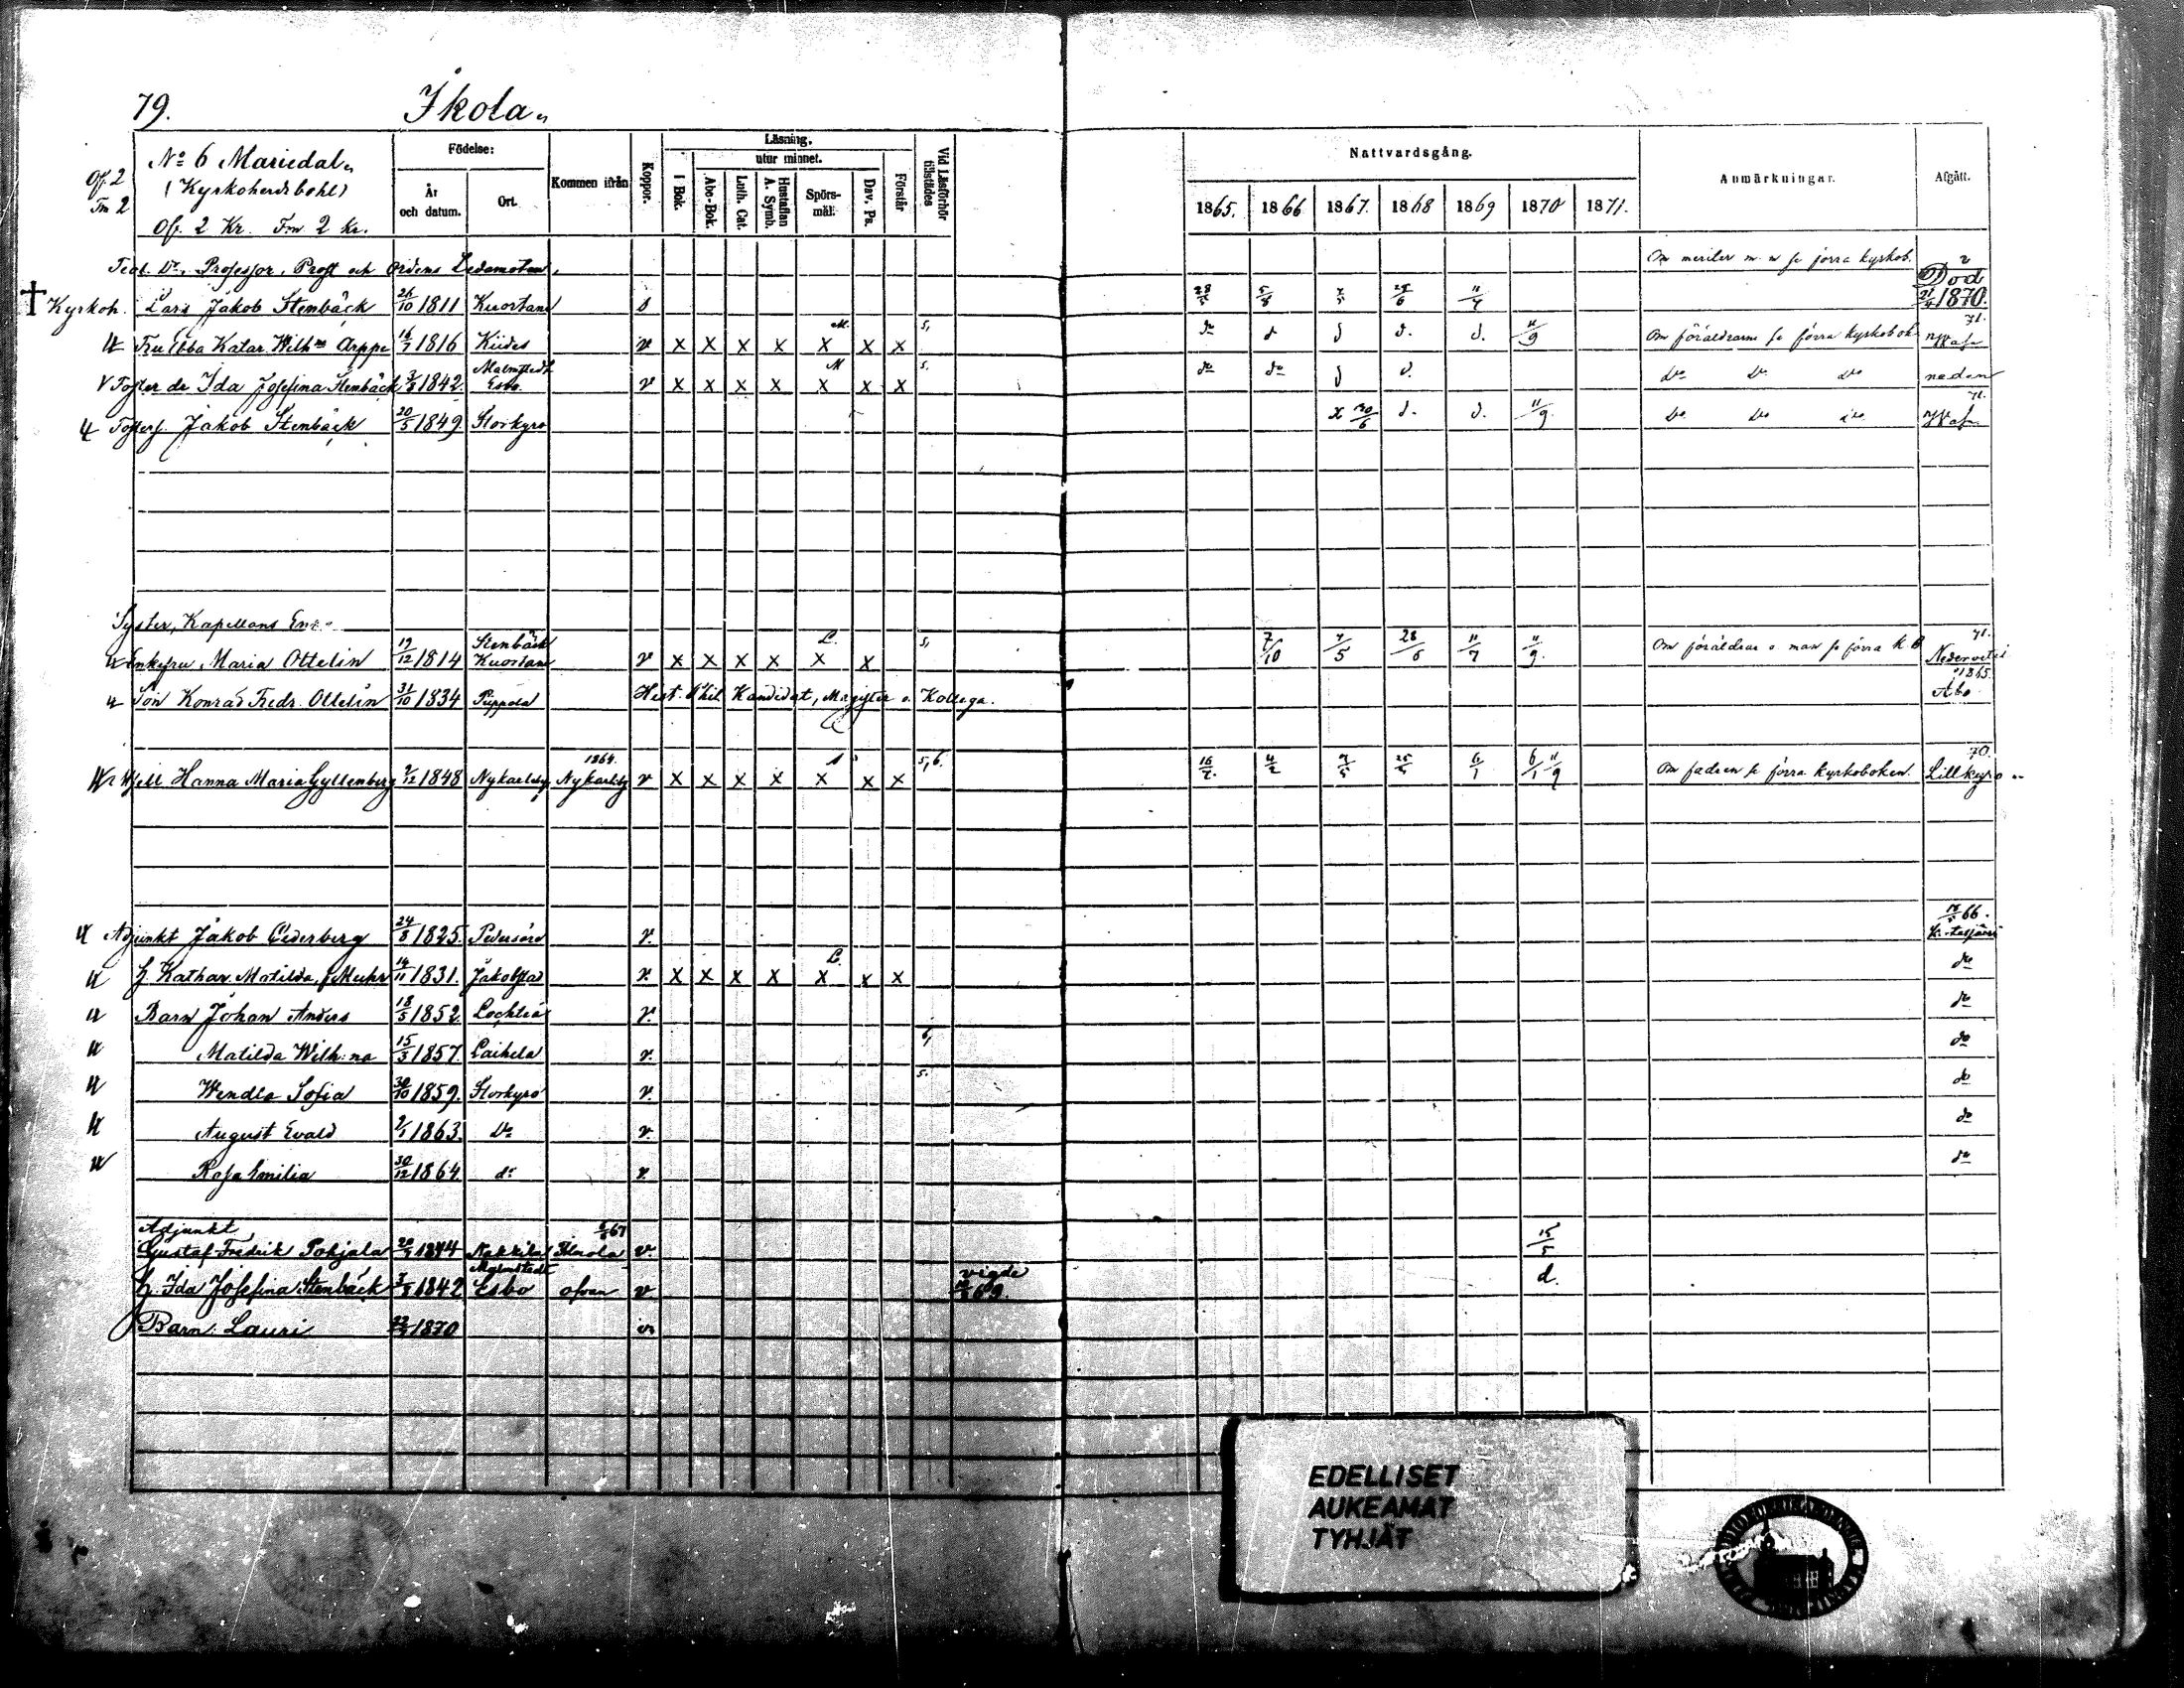 79. Ikola
Of. 2
Fm 2
No 6 Mariedal
(Kyrkoherdsbohl)
Of. 2 Kr. Fm 2 Kr.
Födelse:
År och datum.
Ort.
Kommen ifrån
Koppor.
Läsning,
utur minnet.
I Bok.
Abc-Bok.
Luth. Cat.
Hustaflan A. Symb.
Spörs-mål.
Dav. Ps.
Förstår
Vid Läsförhör tillstädes
Nattvardsgång.
1865. 1866 1867. 1868 1869 1870 1871.
Anmärkningar.
Afgått.
Teol. Dr. Professor, Prost och Ordens Ledamoten Om meriter m. m. se förra kyrkob.
Kyrkoh. Lars Jakob Stenbäck 26/10 1811 Kuortane s 28/5 5/8 11/7 Död 21/4 1870.
Fru Ebba Katar. Wilh:na Arppe 16/7 1816 Kides v x x x x x x x M. 5, do d d d. d. 11/9 Om föräldrarne se förra kyrkobok 71. Wasa
Foster dr Ida Josefina Stenbäck 3/8 1842. Malmstedt Esbo v x x x x x x x M 5. do do d d. do do do nedan
Fosters. Jakob Stenbäck 20/5 1849 Storkyro x 30/6 d. d. 11/9. do do do 71. Wasa
Syster, Kapellans Enka
Enkefru Maria Ottelin 19/12 1814 Stenbäck Kuortane v x x x x x x L. 5, 7/10 7/5 28/6 11/7 11/9. Om föräldrar o. man se förra K B 71. Nedervetil
Son Konrad Fredr. Ottelin 31/10 1834 Pippola Hist. Phil. Kandidat, Magister o. Kollega. 1865. Åbo
Mjell Hanna Maria Gyllenberg 9/12 1848 Nykarleby 1864. Nykarleby v x x x x x x x 5, 6. 4/2 7/5 6/1 6/1 11/9 Om fadren se förra kyrkoboken. 70. Lillkyro
Adjunkt Jakob Cederberg 24/8 1825. Pedersöre v. 66.
H. Kathar. Matilda, f. Muhr 14/11 1831. Jakobstad v. x x x x x x x L. do
Barn Johan Anders 18/5 1852. Lochteå v. do
Matilda Wilh:na 15/3 1857. Laihela v. 6, do
Wendla Sofia 30/10 1859. Storkyro v. 5. do
August Evald 2/1 1863. do v. do
Rosa Emilia 30/12 1864. do v. do
Adjunkt
Gustaf Fredrik Pohjala 1844 Nakkila 67 v. 15/5
H. Ida Josefina Stenbäck 3/8 1842 Malmstedt Esbo ofvan v vigde 69. d.
Barn: Lauri 1870 v
EDELLISET
AUKEAMAT
TYHJÄT